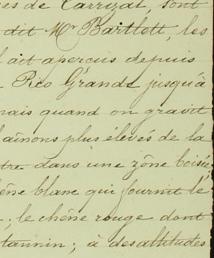 es de Carrizal, sont
dit Mr Bartlott, les
l ait aperçus depuis
Rio Grande jusqu'à
mais quand on gravit
chaînons plus élevés de la
tre dans une zône boisée
chêne blanc qui fournit le
le chêne rouge dont
tannin; à des altitudes